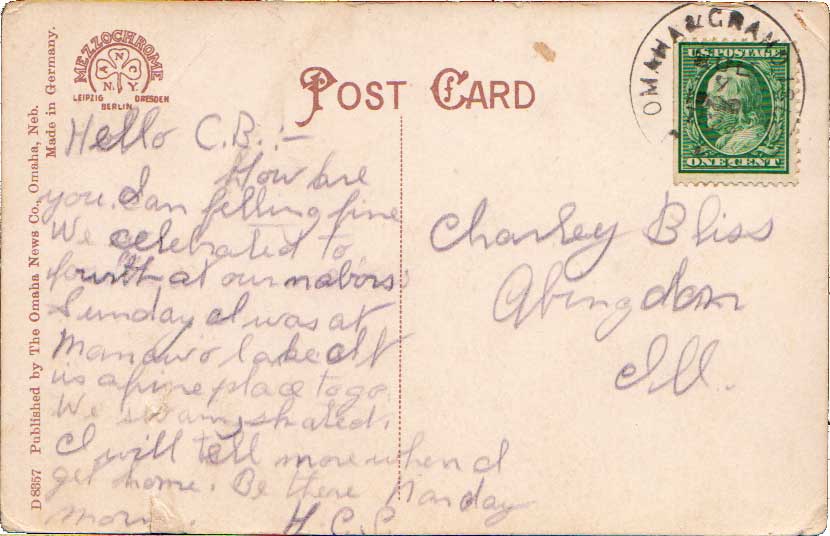 MEZZOCHROME
A N C
N.Y.
LEIPZIG DRESDEN
BERLIN
POST CARD
OMAHA & GRAN
U.S. POSTAGE
ONE CENT
D 8357 Published by The Omaha News Co., Omaha, Neb.
Made in Germany.
Hello C.B.:-
How are
you. I am felling fine
We celebrated to
fourth at our nabors
Sunday I was at
Manawo lake It
is a fine place to go.
We swam, skated.
I will tell more when I
get home. Be there Monday
morn. H.C.S.
Charley Bliss
Abingdon
Ill.